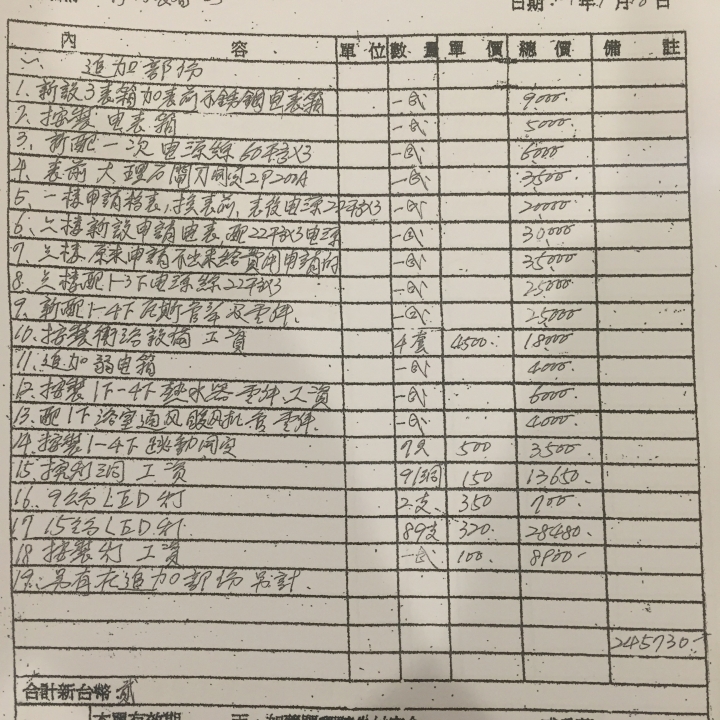 日期
內容 單位 數量 單價 總價 備註
一、追加部份
1. 新設3表箱加表前不銹鋼电表箱 一式 9000.
2. 按裝 电表箱 一式 5000.
3. 新配一次电源線60平方×3 一式 6000.
4. 表前大理石閘刀開関2P200A 一式 3500.
5. 一樓申請移表,按表前,表後电源22平方×3 一式 20000.
6. 六樓新設申請电表,配22平方×3电源 一式 30,000.
7. 原來申請不出來給費用申請的 一式 35000.
8. 配1-3下电源線22平方×3 一式 25000.
9. 新配1-4下瓦斯管等及零件. 一式 25000.
10. 按裝衛浴設備 工資 4套 4500. 18000.
11. 追加弱电箱 一式 4000.
12. 按裝1下-4下熱水器零件工資 一式 6000.
13. 配1下浴室通風暖风机管零件. 一式 4000.
14. 按裝1-4下 7只 500 3500.
15. 挖灯洞 工資 91洞 150 13650.
16. 9 LED灯 2支. 350 700.
17 15 LED灯 89支 320. 28480.
18 按裝灯 工資 一式 100. 8900.
19. 另有在追加部份另計.
245730.
合計新台幣 貳